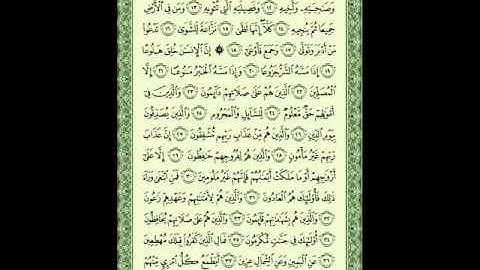 وَصَٰحِبَتِهِۦ وَأَخِيهِ ١٢ وَفَصِيلَتِهِ ٱلَّتِى تُـْٔوِيهِ ١٣ وَمَن فِى ٱلْأَرْضِ
جَمِيعًا ثُمَّ يُنجِيهِ ١٤ كَلَّآ إِنَّهَا لَظَىٰ ١٥ نَزَّاعَةً لِّلشَّوَىٰ ١٦ تَدْعُوا۟
مَنْ أَدْبَرَ وَتَوَلَّىٰ ١٧ وَجَمَعَ فَأَوْعَىٰٓ ١٨ ۞ إِنَّ ٱلْإِنسَٰنَ خُلِقَ هَلُوعًا
١٩ إِذَا مَسَّهُ ٱلشَّرُّ جَزُوعًا ٢٠ وَإِذَا مَسَّهُ ٱلْخَيْرُ مَنُوعًا ٢١ إِلَّا
ٱلْمُصَلِّينَ ٢٢ ٱلَّذِينَ هُمْ عَلَىٰ صَلَاتِهِمْ دَآئِمُونَ ٢٣ وَٱلَّذِينَ فِىٓ
أَمْوَٰلِهِمْ حَقٌّ مَّعْلُومٌ ٢٤ لِّلسَّآئِلِ وَٱلْمَحْرُومِ ٢٥ وَٱلَّذِينَ يُصَدِّقُونَ
بِيَوْمِ ٱلدِّينِ ٢٦ وَٱلَّذِينَ هُم مِّنْ عَذَابِ رَبِّهِم مُّشْفِقُونَ ٢٧ إِنَّ عَذَابَ
رَبِّهِمْ غَيْرُ مَأْمُونٍ ٢٨ وَٱلَّذِينَ هُمْ لِفُرُوجِهِمْ حَٰفِظُونَ ٢٩ إِلَّا عَلَىٰٓ
أَزْوَٰجِهِمْ أَوْ مَا مَلَكَتْ أَيْمَٰنُهُمْ فَإِنَّهُمْ غَيْرُ مَلُومِينَ ٣٠ فَمَنِ ٱبْتَغَىٰ وَرَآءَ
ذَٰلِكَ فَأُو۟لَٰٓئِكَ هُمُ ٱلْعَادُونَ ٣١ وَٱلَّذِينَ هُمْ لِأَمَٰنَٰتِهِمْ وَعَهْدِهِمْ رَٰعُونَ
٣٢ وَٱلَّذِينَ هُم بِشَهَٰدَٰتِهِمْ قَآئِمُونَ ٣٣ وَٱلَّذِينَ هُمْ عَلَىٰ صَلَاتِهِمْ يُحَافِظُونَ
٣٤ أُو۟لَٰٓئِكَ فِى جَنَّٰتٍ مُّكْرَمُونَ ٣٥ فَمَالِ ٱلَّذِينَ كَفَرُوا۟ قِبَلَكَ مُهْطِعِينَ
٣٦ عَنِ ٱلْيَمِينِ وَعَنِ ٱلشِّمَالِ عِزِينَ ٣٧ أَيَطْمَعُ كُلُّ ٱمْرِئٍ مِّنْهُمْ